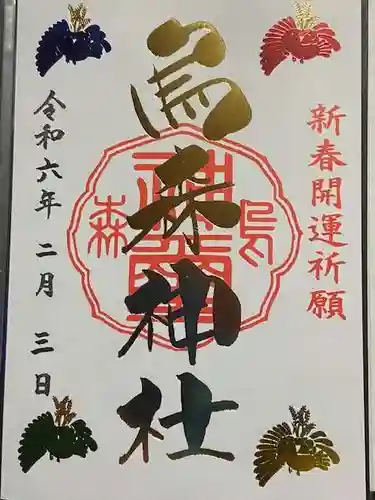 新春開運祈願
烏森神社
烏森
令和六年二月三日